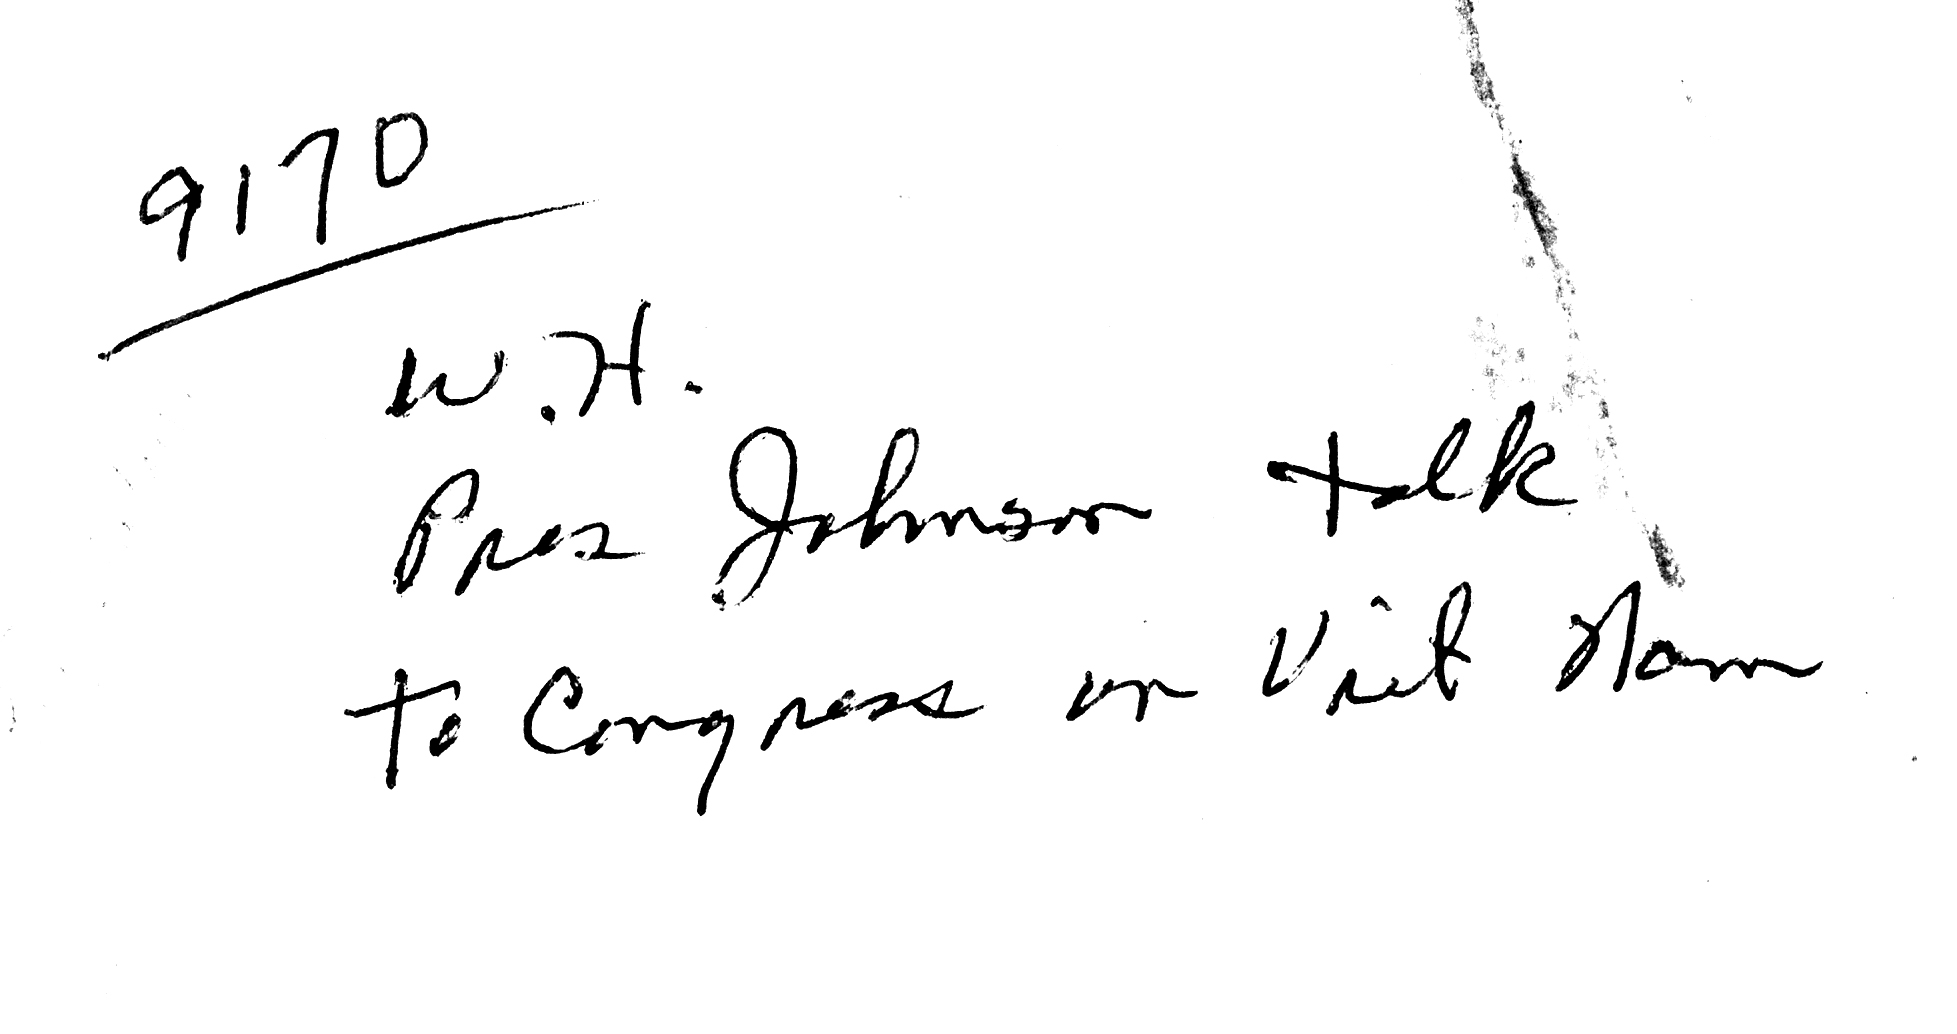 9170
W.H.
Pres Johnson talk
to Congress on Viet Nam